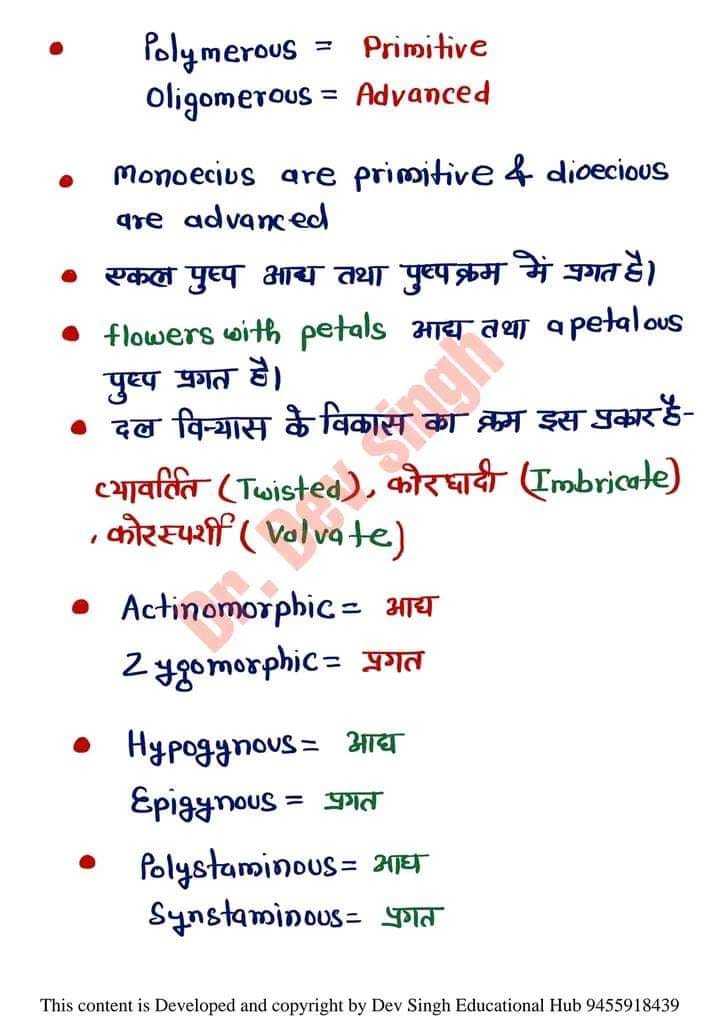 Polymerous = Primitive
Oligomerous = Advanced
Monoecius are primitive & dioecious
are advanced
एकल पुष्प आद्य तथा पुष्पक्रम में प्रगत है।
flowers with petals आद्य तथा apetalous
पुष्प प्रगत है।
दल विन्यास के विकास का क्रम इस प्रकार है-
व्यावर्तित (Twisted), कोरछादी (Imbricate)
, कोरस्पर्शी (Valvate)
Actinomorphic = आद्य
Zygomorphic = प्रगत
Hypogynous = आद्य
Epigynous = प्रगत
Polystaminous = आद्य
Synstaminous = प्रगत
Dr. Dev Singh
This content is Developed and copyright by Dev Singh Educational Hub 9455918439